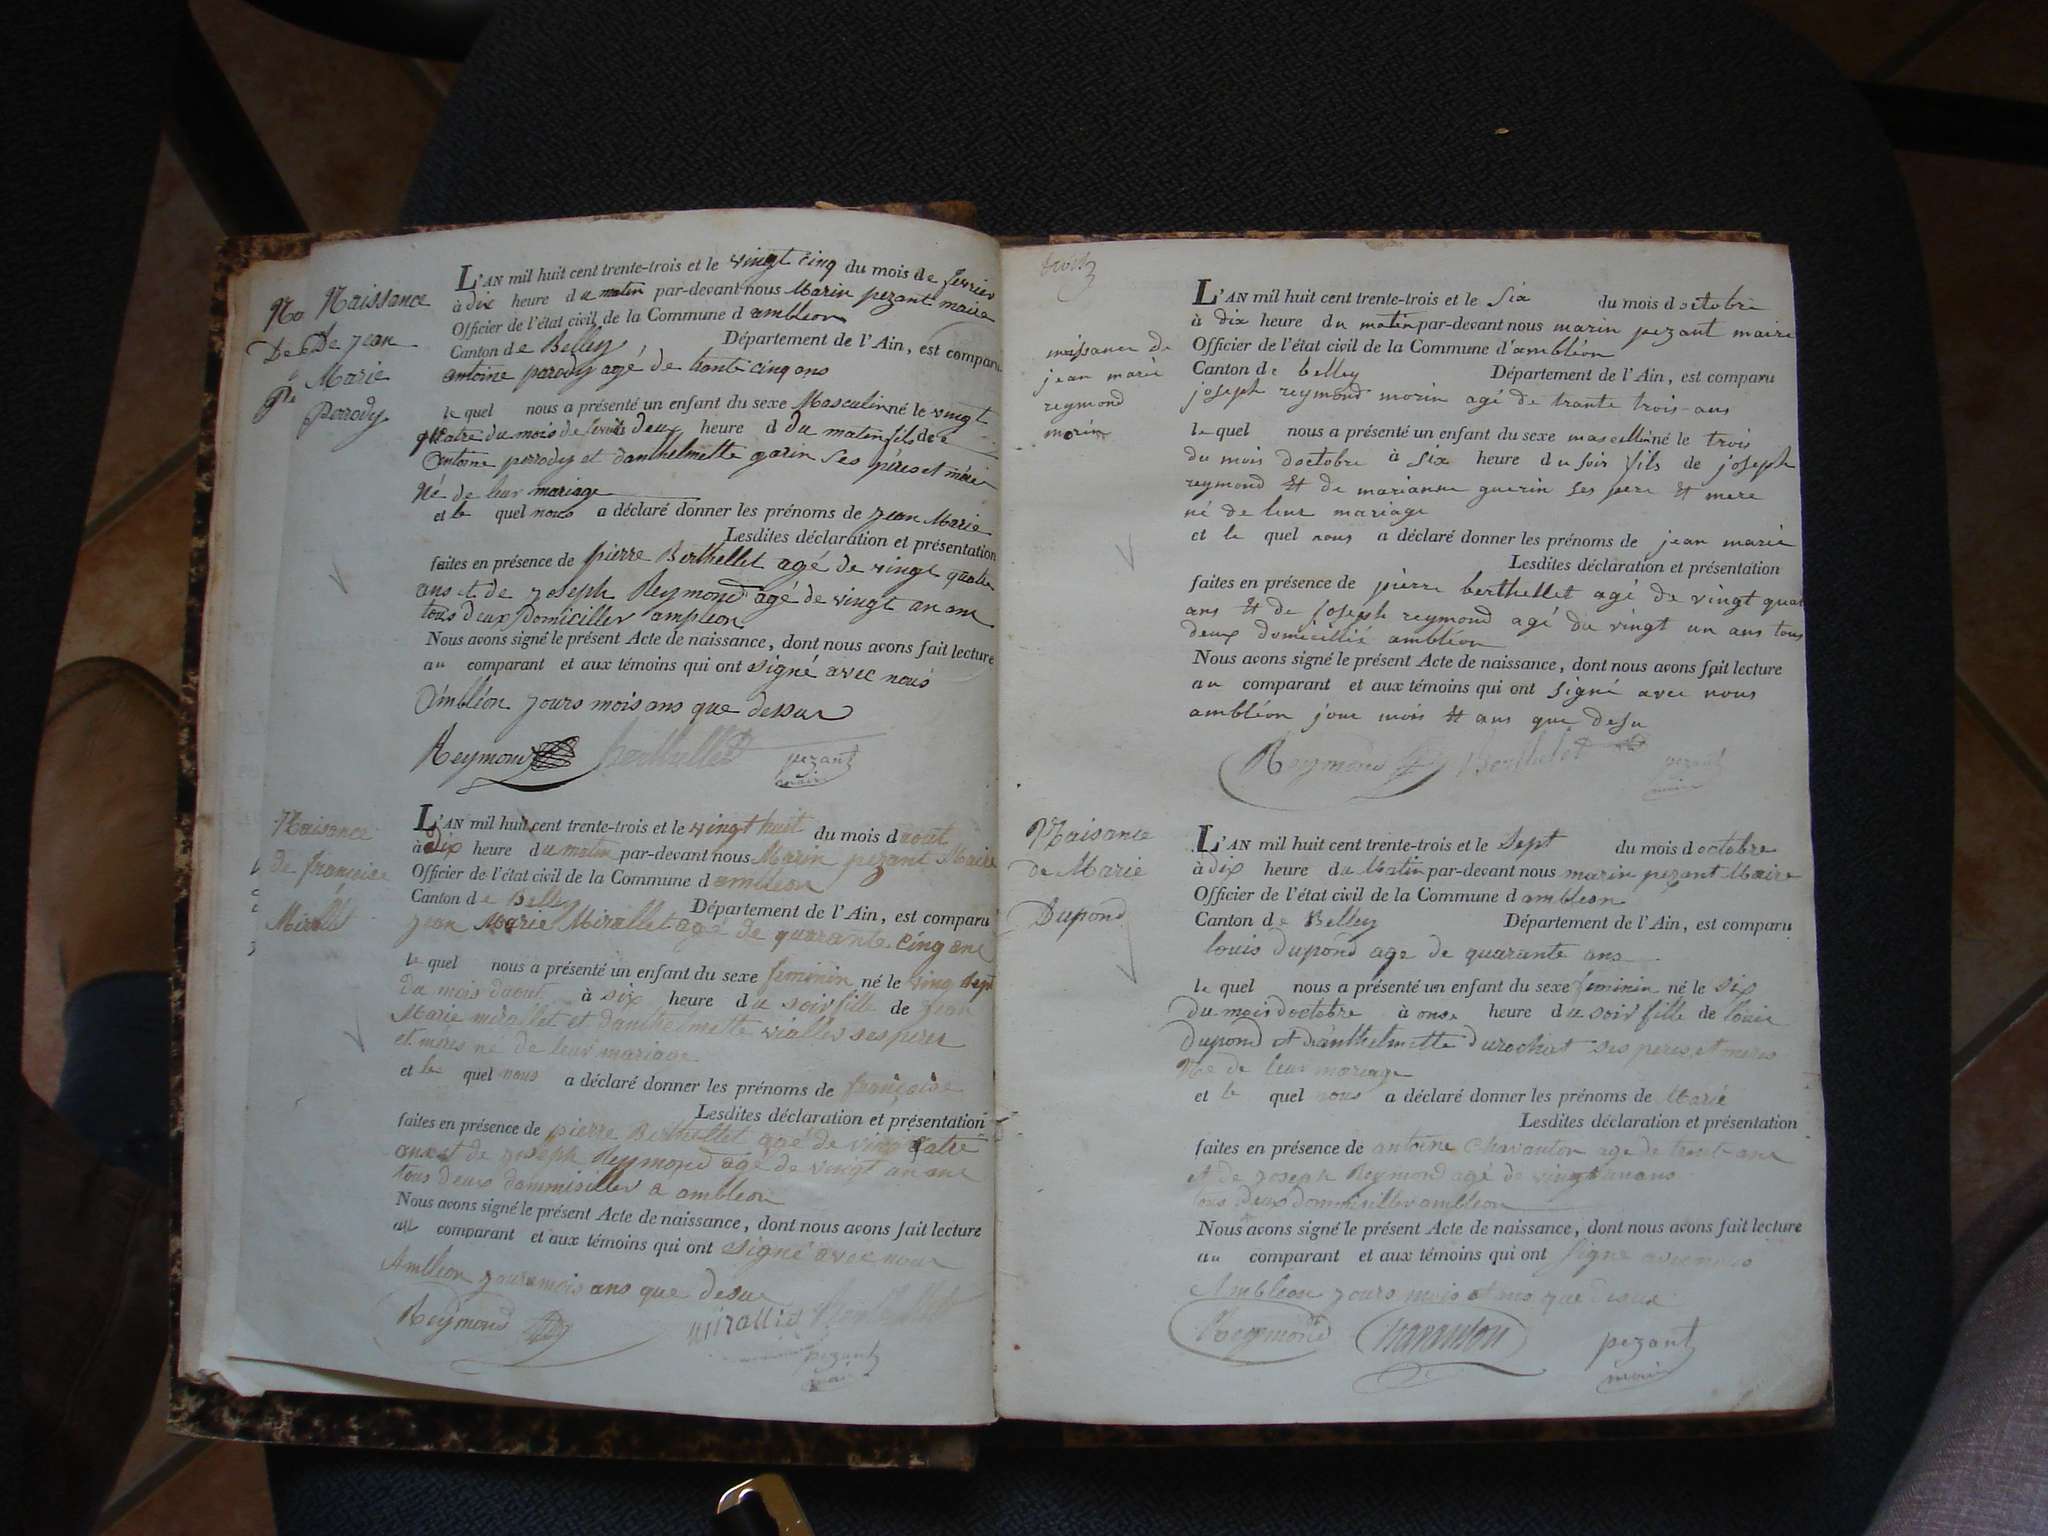 Naissance
De Jean
Marie
Perrody
L'AN mil huit cent trente-trois et le vingt cinq du mois de fevrier
à dix heure du matin par-devant nous Marin pezant maire
Officier de l'état civil de la Commune d'ambléon
Canton de Belley, Département de l'Ain, est comparu
antoine parody agé de trente cinq ans
le quel nous a présenté un enfant du sexe Masculin né le vingt
quatre du mois de fevrier deux heure d du matin fils de
antoine perrody et danthelmette garin ses péres et mére
Né de leur mariage
et le quel nous a déclaré donner les prénoms de Jean Marie
Lesdites déclaration et présentation
faites en présence de pierre Berthellet agé de vingt quatre
ans et de Joseph Reymond agé de vingt un ans
tous deux domiciller ambleon
Nous avons signé le présent Acte de naissance, dont nous avons fait lecture
au comparant et aux témoins qui ont signé avec nous
Ambléon jours mois ans que dessus
Reymond berthellet pezant
maire
Naisance
de françoise
Mirallé
L'AN mil huit cent trente-trois et le vingt huit du mois d'aout
à dix heure du matin par-devant nous Marin pezant Maire
Officier de l'état civil de la Commune d'ambleon
Canton de Belley Département de l'Ain, est comparu
Jean Marie Mirallet agé de quarante cinq ans
le quel nous a présenté un enfant du sexe feminin né le ving sept
du mois daout à six heure du soir fille de Jean
Marie mirallet et danthelmette viallet ses peres
et meres né de leur mariage
et le quel nous a déclaré donner les prénoms de françoise
Lesdites déclaration et présentation
faites en présence de pierre Berthellet agé de ving catre
ans et de Joseph Reymond agé de vingt un ans
tous deux dommiciller a ambleon
Nous avons signé le présent Acte de naissance, dont nous avons fait lecture
au comparant et aux témoins qui ont signé avec nous
Ambleon jours mois ans que desus
Reymond mirallet berthellet
pezant
maire
naissance de
jean marie
reymond
morin
L'AN mil huit cent trente-trois et le six du mois d'octobre
à dix heure du matin par-devant nous marin pezant maire
Officier de l'état civil de la Commune d'ambléon
Canton de belley Département de l'Ain, est comparu
joseph reymond morin agé de trante trois ans
le quel nous a présenté un enfant du sexe mascullin né le trois
du mois doctobre à six heure du soir fils de joseph
reymond et de marianne guerin ses pere et mere
né de leur mariage
et le quel nous a déclaré donner les prénoms de jean marie
Lesdites déclaration et présentation
faites en présence de pierre berthellet agé de vingt quat
ans et de joseph reymond agé du vingt un ans tous
deux domicillié ambléon
Nous avons signé le présent Acte de naissance, dont nous avons fait lecture
au comparant et aux témoins qui ont signé avec nous
ambléon jour mois et ans que desu
Reymond Berthelet pezant
maire
Naisance
de Marie
Dupond
L'AN mil huit cent trente-trois et le sept du mois d'octobre
à dix heure du Matin par-devant nous marin pezant Maire
Officier de l'état civil de la Commune d'ambleon
Canton de Belley Département de l'Ain, est comparu
louis dupond age de quarante ans
le quel nous a présenté un enfant du sexe feminin né le six
du mois doctobre à onse heure du soir fille de louis
dupond et d'anthelmette durochat ses peres et meres
Né de leur mariage
et le quel nous a déclaré donner les prénoms de Marie
Lesdites déclaration et présentation
faites en présence de antoine Chavanton age de trent ans
et de Joseph Reymond agé de vingt un ans
tous deux Dommiciller ambleon
Nous avons signé le présent Acte de naissance, dont nous avons fait lecture
au comparant et aux témoins qui ont signé avec nous
Ambleon jours mois et ans que desus
Reymond Chavanton pezant
maire